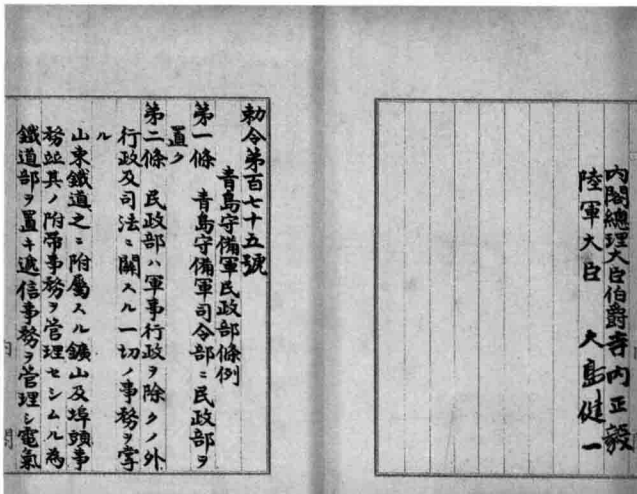 內閣總理大臣伯爵寺内正毅
陸軍大臣 大島健一
勅令第百七十五號
青島守備軍民政部條例
第一條 青島守備軍司令部ニ民政部ヲ
置ク
第二條 民政部ハ軍事行政ヲ除クノ外
行政及司法ニ關スル一切ノ事務ヲ掌
ル
山東鐵道之ニ附屬スル鑛山及埠頭事
務並其ノ附帶事務ヲ管理セシムル為
鐵道部ヲ置キ遞信事務ヲ管理シ電氣
內
閣